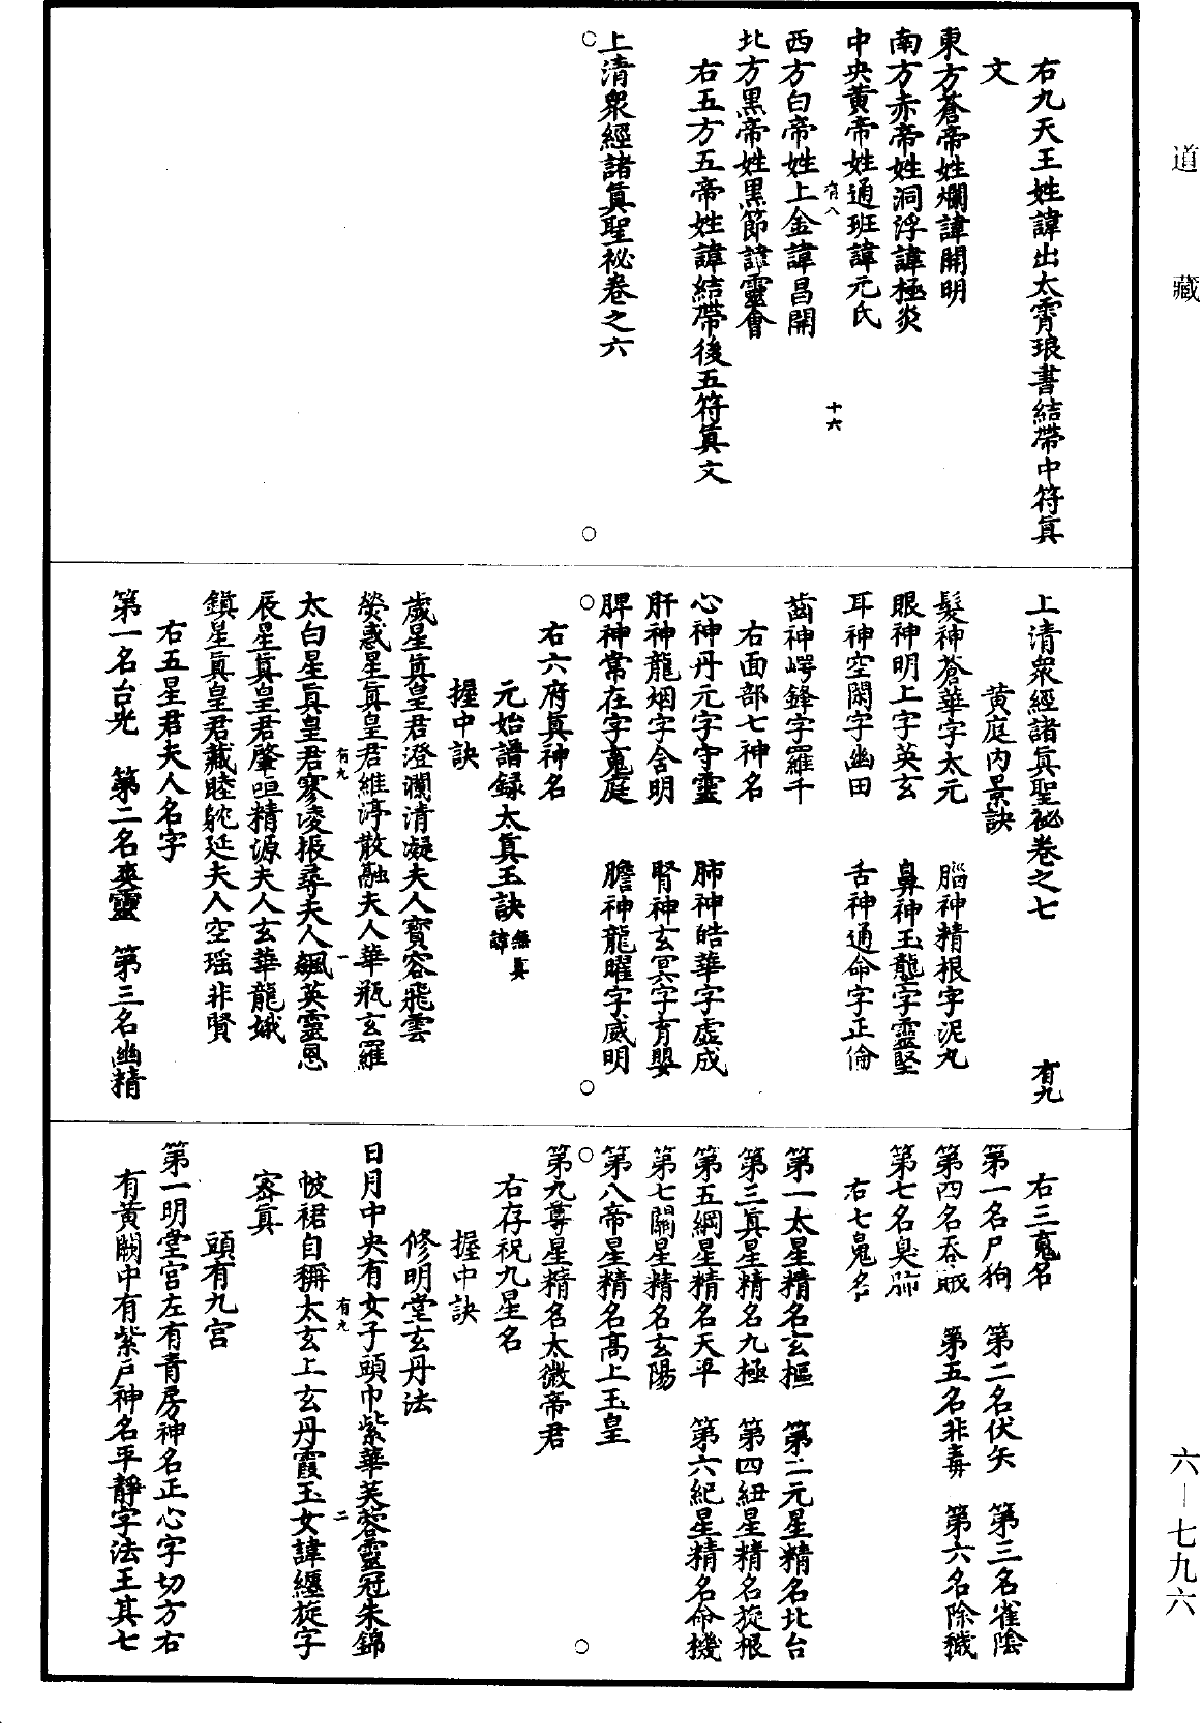 道藏
右九天王姓諱出太霄琅書結帶中符眞
文
東方蒼帝姓爛諱開明
南方赤帝姓洞浮諱極炎
中央黃帝姓通班諱元氏
有八
十六
西方白帝姓上金諱昌開
北方黑帝姓黑節諱靈會
右五方五帝姓諱結帶後五符眞文
上清衆經諸眞聖祕卷之六
上清衆經諸眞聖祕卷之七 有九
黃庭內景訣
髮神蒼華字太元 腦神精根字泥丸
眼神明上字英玄 鼻神玉壟字靈堅
耳神空閑字幽田 舌神通命字正倫
齒神崿鋒字羅千
右面部七神名
心神丹元字守靈 肺神皓華字虛成
肝神龍烟字含明 腎神玄冥字育嬰
脾神常在字䰟庭 膽神龍曜字威明
右六府眞神名
元始譜録太眞玉訣無眞諱
握中訣
歲星眞皇君澄瀾清凝夫人寳容飛雲
熒惑星眞皇君維渟散融夫人華瓶玄羅
有九
一
太白星眞皇君寥凌振尋夫人飆英靈恩
辰星眞皇君肇咺精源夫人玄華龍娥
鎮星眞皇君藏睦躭延夫人空瑶非賢
右五星君夫人名字
第一名台光 第二名爽靈 第三名幽精
右三䰟名
第一名尸狗 第二名伏矢 第三名雀陰
第四名吞賊 第五名非毒 第六名除穢
第七名臭肺
右七魄名
第一太星精名玄樞 第二元星精名北台
第三眞星精名九極 第四紐星精名旋根
第五綱星精名天平 第六紀星精名命機
第七關星精名玄陽
第八帝星精名高上玉皇
第九尊星精名太微帝君
右存祝九星名
握中訣
修明堂玄丹法
日月中央有女子頭巾紫華芙蓉靈冠朱錦
有九
二
帔裙自稱太玄上玄丹霞玉女諱纒旋字
密眞
頭有九宮
第一明堂宮左有青房神名正心字切方右
有黃闕中有紫戶神名平靜字法王其七
六—七九六